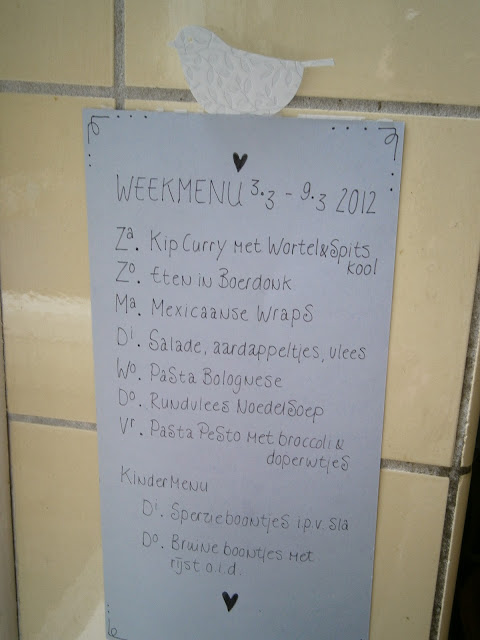 WEEKMENU 3.3 - 9.3 2012
Za. Kip Curry met Wortel & Spits
kool
Zo. Eten in Boerdonk
Ma. Mexicaanse Wraps
Di. Salade, aardappeltjes, vlees
Wo. Pasta Bolognese
Do. Rundvlees NoedelSoep
Vr. Pasta Pesto met broccoli &
doperwtjes
KinderMenu
Di. Spercieboontjes i.p.v. sla
Do. Bruine boontjes met
rijst o.i.d.